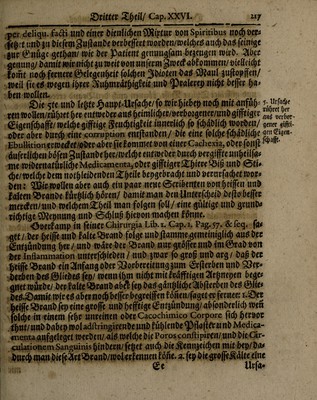 Dritter Theil/ Cap. XXVI. 217
per deliqu. facti und einer dienlichen Mixtur von Spiritibus noch ver-
setzet und zu diesem Zustande verbessert worden/ welches auch das seinige
zur Gnüge gethan/ wie der Patient genungsam bezeugen wird. Aber
genung/ damit wir nicht zu weit von unserm Zweck abkommen/ vielleicht
kömt noch fernere Gelegenheit solchen Idioten das Maul zustopffen/
weil sie es wegen ihrer Ruhmräthigkeit und Pralerey nicht besser ha-
ben wollen.
Die 5te und letzte Haupt-Ursache/ so wir hiebey noch mit anfüh-
ren wollen/ rühret her entweder aus heimlicher/ verborgener/ und gifftiger
Eigenschafft/ welche gifftige Feuchtigkeit innerlich so schädlich worden/
oder aber durch eine corruption entstanden/ die eine solche schädliche
Ebullition erwecket/ oder aber sie kommet von einer Cachexia, oder sonst
äuserlichen bösen Zustande her/ welche entweder durch vergiffte unheilsa-
me widernatürliche Medicamenta, oder gifftiger Thiere Biß und Sti-
che/ welche dem nothleidenden Theile beygebracht und verursachet wor-
den: Wir wollen aber auch ein paar neue Scribenten von heissen und
kalten Brande kürtzlich hören/ damit man den Unterscheid desto besser
mercken/ und welchem Theil man folgen soll/ eine gültige und grund-
richtige Meynung und Schluß hiervon machen könne.
5. Ursache
rühret her
aus verbor-
gener giffti-
gen Eigen-
schafft.
Overkamp in seiner Chirurgia Lib. 1. Cap. 2. Pag. 57. & seq. sa-
get/ der heisse und kalte Brand folge und stamme gemeiniglich aus der
Entzündung her/ und wäre der Brand nur grösser und im Grad von
der Inflammation unterschieden/ und zwar so groß und arg/ daß der
heisse Brand ein Anfang oder Vorbereitung zum Ersterben und Ver-
derben des Gliedes sey/ wenn ihm nicht mit kräfftigen Artzneyen bege-
gnet würde/ der kalte Brand aber sey das gäntzliche Absterben des Glie-
des. Damit wir es aber noch besser begreiffen können/ saget er ferner 1. Der
heisse Brand sey eine grosse und hefftige Entzündung/ absonderlich wen
solche in einem sehr unreinen oder Cacochimico Corpore sich hervor
thut/ und dabey wol adstringirende und kühlende Pflaster und Medica-
menta aufgeleget werden/ als welche die Poros constipiren/ und die Cir-
culationem Sanguinis hindern/ setzet auch die Kennzeichen mit bey/ da-
durch man diese Art Brand/ wol erkennen köñe. 2. sey die grosse Kälte eine
Ee Ursa-